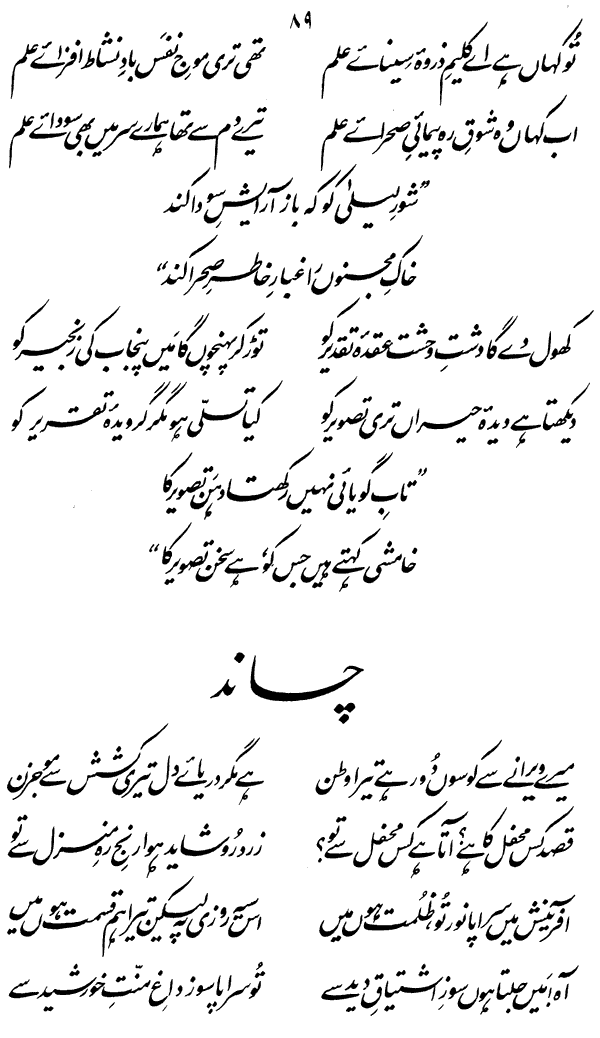 ۸۹
تُو کہاں ہے اے کلیمِ ذروۂ سینائے علم تھی تری موجِ نفَس بادِ نشاط افزائے علم
اب کہاں وہ شوقِ رہ پیمائیِ صحرائے علم تیرے دم سے تھا ہمارے سر میں بھی سودائے علم
”شورِ لیلیٰ کو کہ باز آرایشِ سودا کند
خاکِ مجنوں را غبارِ خاطرِ صحرا کند“
کھول دے گا دشتِ وحشت عقدۂ تقدیر کو توڑ کر پہنچوں گا مَیں پنجاب کی زنجیر کو
دیکھتا ہے دیدۂ حیراں تری تصویر کو کیا تسلّی ہو مگر گرویدۂ تقریر کو
”تابِ گویائی نہیں رکھتا دہَن تصویر کا
خامشی کہتے ہیں جس کو، ہے سخن تصویر کا“
چاند
میرے ویرانے سے کوسوں دُور ہے تیرا وطن ہے مگر دریائے دل تیری کشش سے موجزن
قصد کس محفل کا ہے؟ آتا ہے کس محفل سے تو؟ زرد رُو شاید ہوا رنجِ رہِ منزل سے تو
آفرینش میں سراپا نور تُو، ظُلمت ہوں میں اس سیہ روزی پہ لیکن تیرا ہم قسمت ہوں میں
آہ! مَیں جلتا ہوں سوزِ اشتیاقِ دید سے تُو سراپا سوز داغِ منّتِ خورشید سے